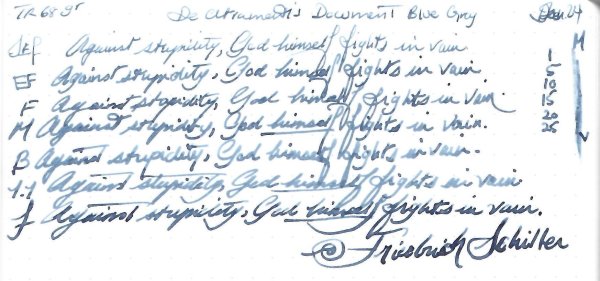 TR 68 gr De Atramentis Document Blue Grey Jan 24
EF Against stupidity, God himself fights in vain M
EF Against stupidity, God himself fights in vain 1
F Against stupidity, God himself fights in vain. 5
M Against stupidity, God himself fights in vain. 10
B Against stupidity, God himself fights in vain. 15
1.1 Against stupidity, God himself fights in vain 20
J Against stupidity, God himself fights in vain. 25
Friedrich Schiller